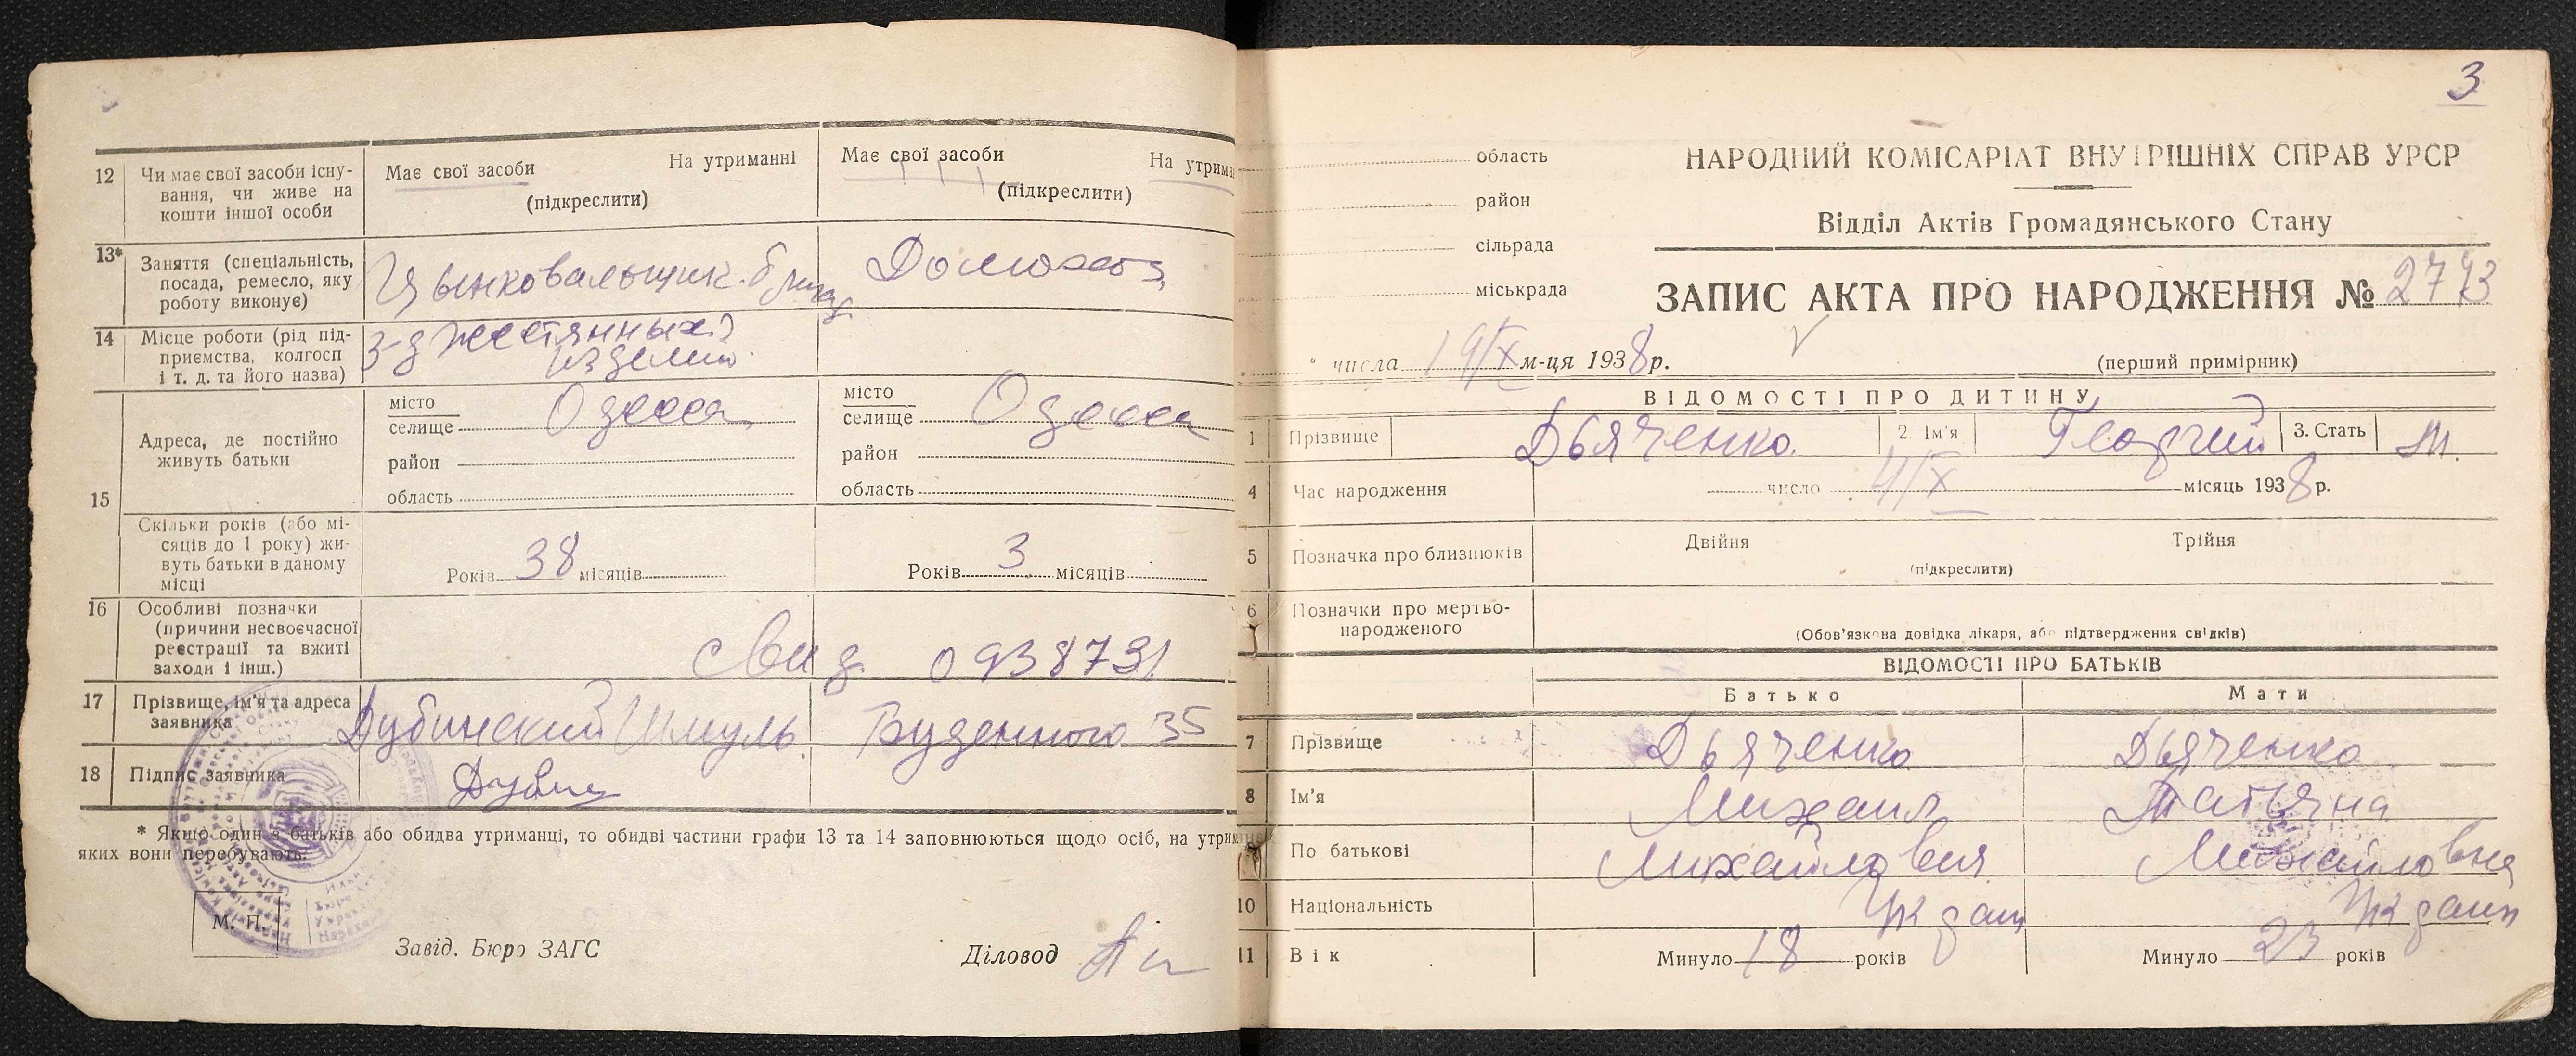 12 Чи має свої засоби існу-
вання, чи живе на
кошти іншої особи
Має свої засоби На утриманні
(підкреслити)
Має свої засоби На утрима
(підкреслити)
13* Заняття (спеціальність,
посада, ремесло, яку
роботу виконує)
Цынковальщик
Домохоз
14 Місце роботи (рід під-
приємства, колгосп
і т. д. та його назва)
з-д жестянных
изделий
15 Адреса, де постійно
живуть батьки
місто
селище Одесса
район
область
місто
селище Одесса
район
область
Скільки років (або мі-
сяців до 1 року) жи-
вуть батьки в даному
місці
Років 38 місяців
Років 3 місяців
16 Особливі позначки
(причини несвоєчасної
реєстрації та вжиті
заходи і інш.)
свид 0938731
17 Прізвище, ім'я та адреса
заявника
Дубинский Шмуль Буденного 35
18 Підпис заявника
* Якщо один з батьків або обидва утриманці, то обидві частини графи 13 та 14 заповнюються щодо осіб, на утрим
яких вони перебувають.
М. П.
Завід. Бюро ЗАГС
Діловод
3
область
район
сільрада
міськрада
НАРОДНИЙ КОМІСАРІАТ ВНУТРІШНІХ СПРАВ УРСР
Відділ Актів Громадянського Стану
ЗАПИС АКТА ПРО НАРОДЖЕННЯ № 2773
" числа 19/X м-ця 1938 р.
(перший примірник)
ВІДОМОСТІ ПРО ДИТИНУ
1 Прізвище Дьяченко 2. Ім'я Георгий 3. Стать М.
4 Час народження число 4/X місяць 1938 р.
5 Позначка про близнюків Двійня Трійня
(підкреслити)
6 Позначки про мертво-
народженого
(Обов'язкова довідка лікаря, або підтвердження свідків)
ВІДОМОСТІ ПРО БАТЬКІВ
Батько Мати
7 Прізвище Дьяченко Дьяченко
8 Ім'я Михаил Татьяна
9 По батькові Михайлович Михайловна
10 Національність
11 Вік Минуло 18 років Минуло 23 років